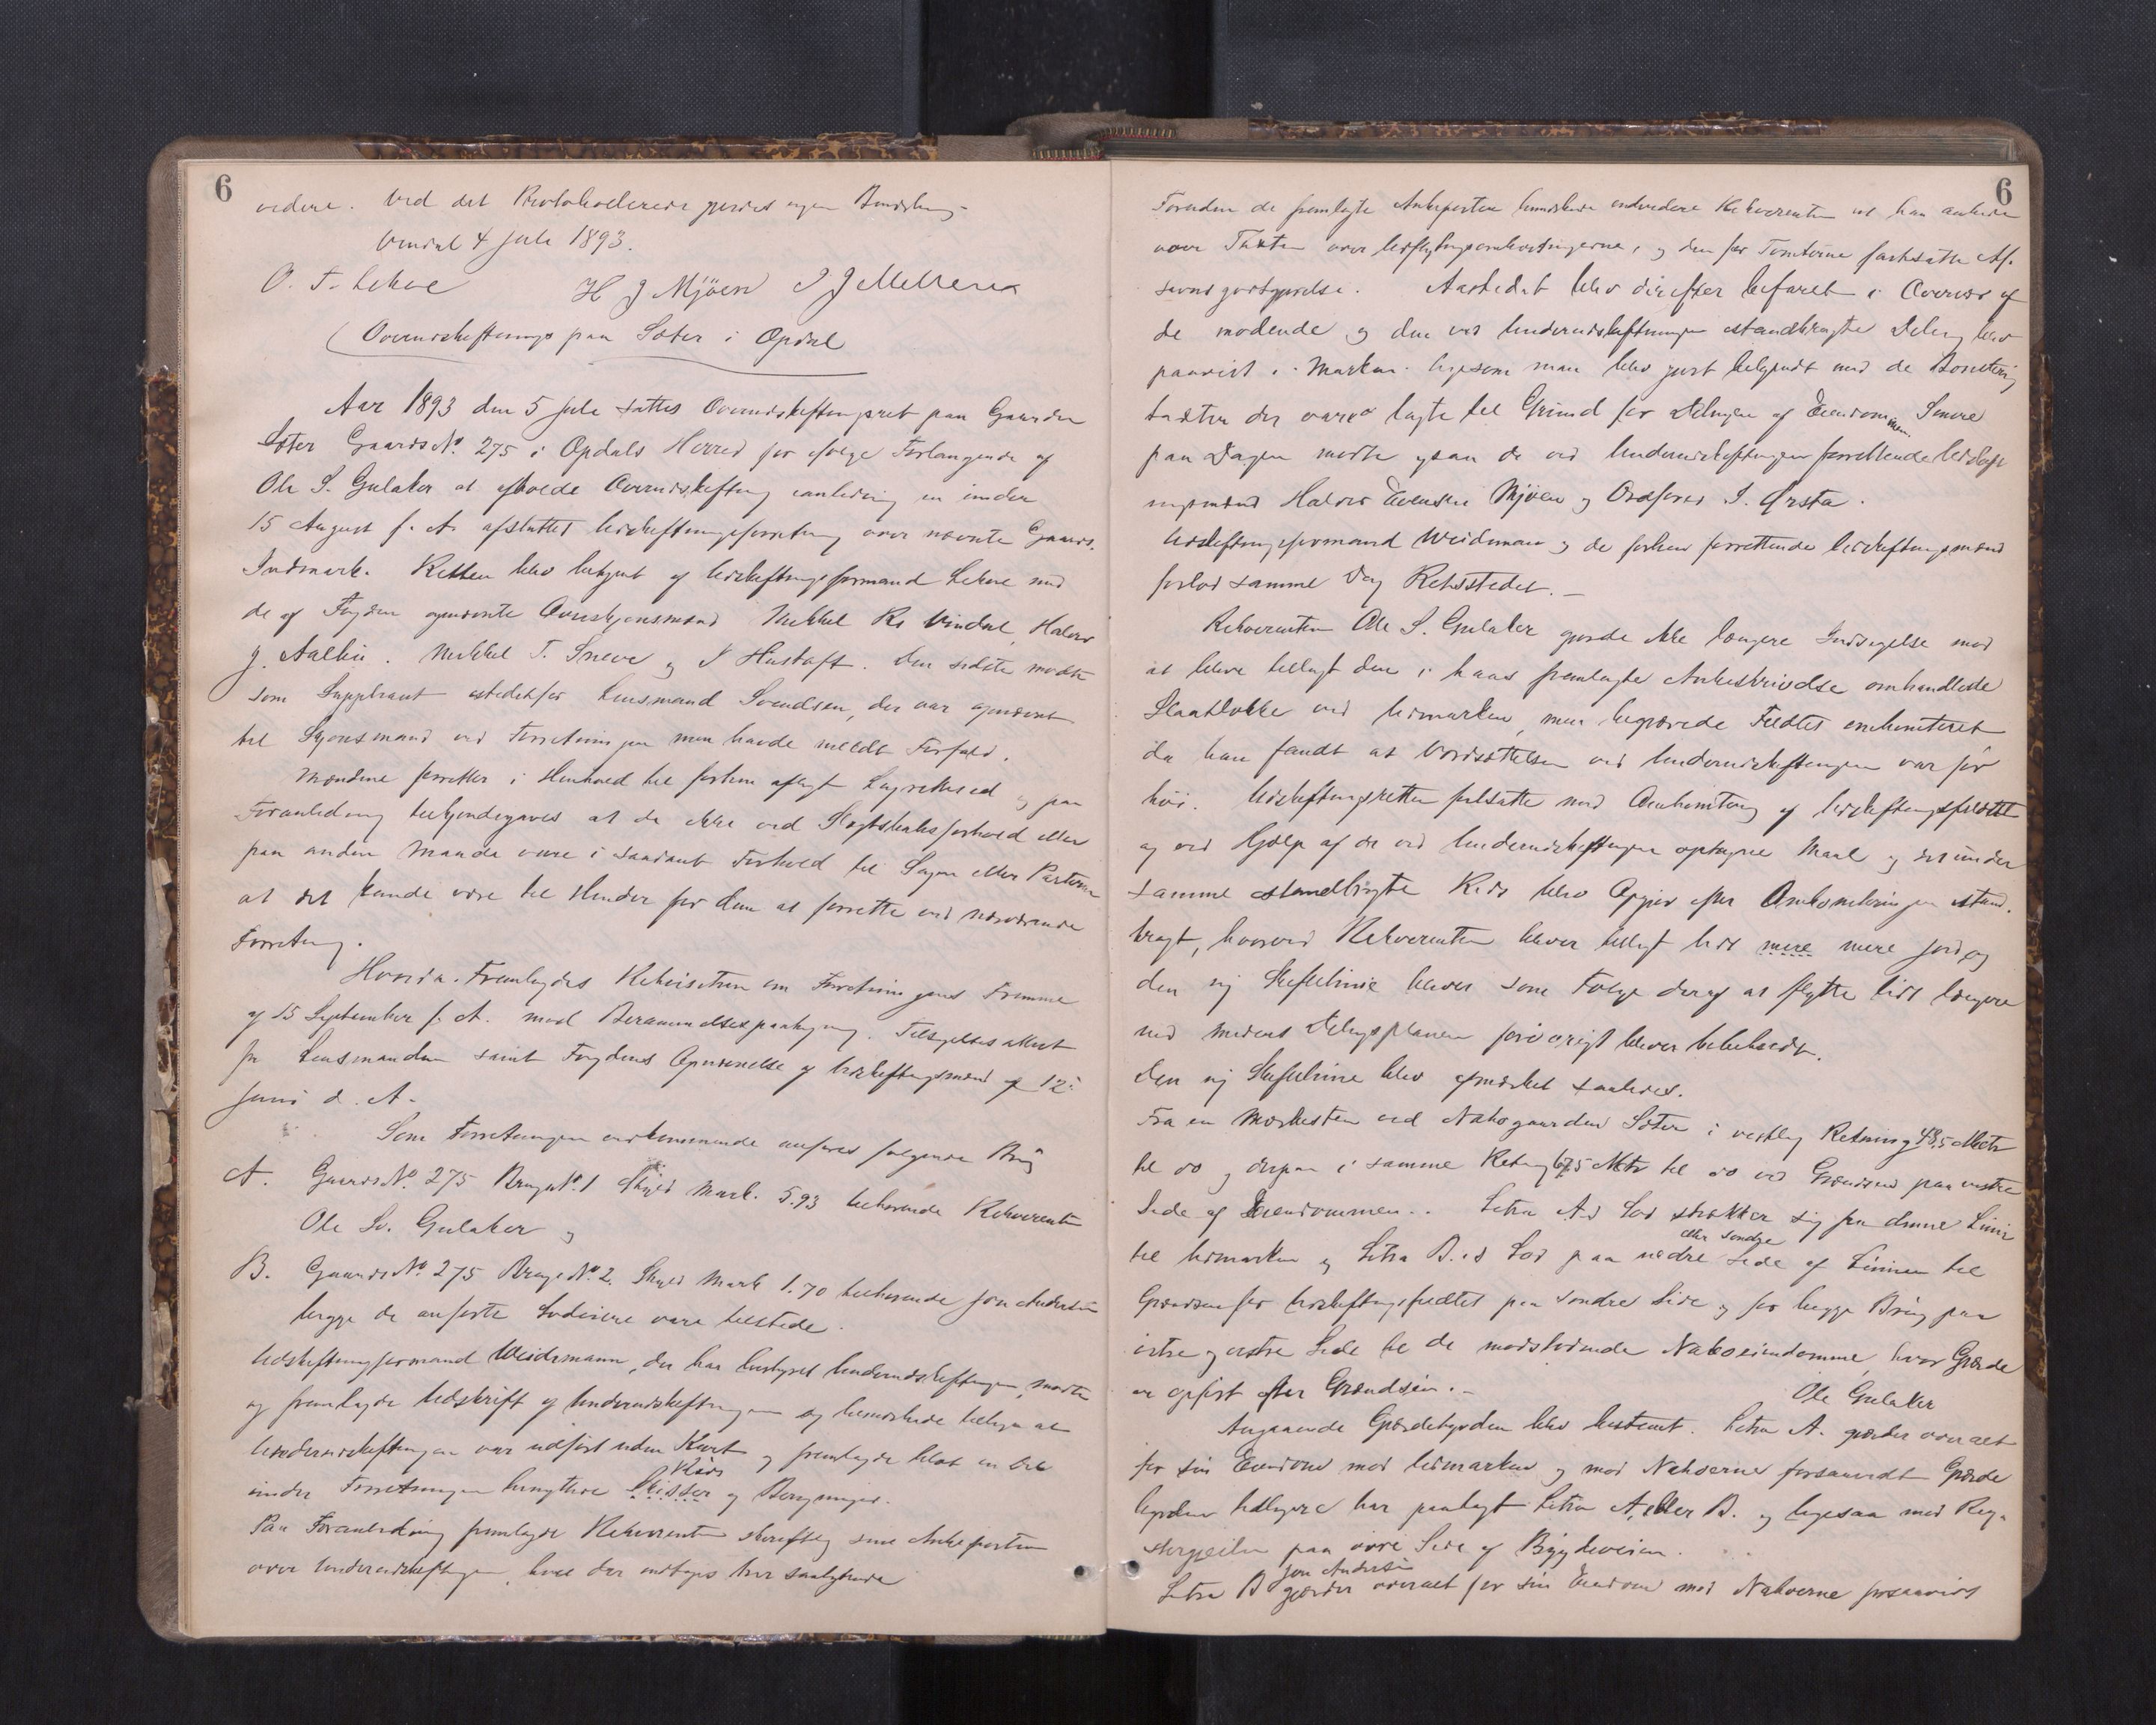 6
videre. Ved det Protokollerede gjordes ingen Bemærkning.
Vindal 4 Juli 1893.
O. T. Lehne H J Mjöen J J Mellem
Overudskiftnings paa Sæter i Opdal
Aar 1893 den 5 Juli sattes Overudskiftningsret paa Gaarden
Sæter Gaards No. 275 i Opdals Herred ifølge Forlangende af
Ole S. Gulaker at afholde Overudskiftning i anledning en under
15 August f. A. afsluttet Udskiftningsforretning over nævnte Gaards
Indmark. Retten blev betjent af Udskiftningsformand Lehne med
de af Fogden opnævnte Overskjønsmænd Mikkel Rs Vindal, Halvor
J. Aalbu. Mikkel T. Sneve og J Hustaft. Den sidste mødte
som Suppleant istedetfor Lensmand Svendsen, der var opnævnt
til Skjønsmand ved Forretningen men havde meldt Forfald.
Mændene forretter i Henhold til forhen aflagt Lagretteed og paa
Foranledning tilkjendegaves at de ikke ved Slægtskabsforhold eller
paa anden Maade vare i saadant Forhold til Sagen eller Parterne
at det kunde være til Hinder for dem at forrette ved nærværende
Forretning.
Hvorda. Fremlagdes Rekvisition om Forretningens Fremme
af 15 September f. A. med Berammelsespaategning. Tilsigelsesattest
fra Lensmanden samt Fogdens Opnævnelse af Udskiftningsmænd af 12.
Juni d. A.
Som Forretningen vedkommende anføres følgende Brug
A. Gaards No. 275 Brugs No. 1 Skyld Mark. 5.93 tilhørende Rekvirenten
Ole Sv. Gulaker og
B. Gaards No. 275 Brugs No. 2. Skyld Mark 1.70 tilhørende Jon Andersen
begge de anførte Lodeiere vare tilstede.
Udskiftningsformand Weidemann, der har bestyret Underudskiftningen, mødte
og fremlagde Udskrift af Underudskiftningen og bemærkede tillige at
Underudskiftningen var udført uden Kart og fremlagde blot en ved
Krids
under Forretningen benyttede Skisser og Beregninger.
Paa Foranledning fremlagde Rekvirenten skriftlig sine Ankeposter
over Underudskiftningen, hvilke der indtages her saalydende
6
Foruden de fremlagte Ankeposter bemærkede endvidere Rekvirenten at han ankede
over Taxten over Udflytningsomkostningerne, og den for Tomterne fastsatte Af-
savnsgodtgjørelse. Aastedet blev derefter befaret i Overvær af
de mødende og den ved Underudskiftningen istandbragte Deling blev
paavist i Marken ligesom man blev gjort bekjendt med de Boniterings
taxter der vare lagte til Grund for Delingen af Eiendommen. Senere
paa Dagen mødte ogsaa de ved Underudskiftningen forrettende Udskift
ningsmænd Halvor Evensen Mjöen og Ordfører I. Ørsta.
Udskiftningsformand Weidemann og de forhen forrettende Udskiftningsmænd
forlod samme Dag Retsstedet.—
Rekvirenten Ole S. Gulaker gjorde ikke længere Indsigelse mod
at blive tillagt den i hans fremlagte Ankeskrivelse omhandlede
Slaatløkke ved Udmarken, men begjærede Feldtet ombonniteret
da han fandt at Værdsættelsen ved Underudskiftningen var for
høi. Udskiftningsretten fortsatte med Ombonitering af Udskiftningsfeldtet
og ved Hjælp af de ved Underudskiftningen optagne Maal og det under
samme istandbragte Krids blev Opgjør efter Ombonniteringen istand-
bragt, hvorved Rekvirenten bliver tillagt lidt mere mere Jord og
den ny Skiftelinie bliver som Følge deraf at flytte lidt længere
ned medens Delingsplanen forøvrigt bliver bibeholdt.
Den ny Skiftelinie blev afmærket saaledes.
Fra en Mærkesten ved Nabogaarden Sæter i vestlig Retning 48,5 Meter
til do og derpaa i samme Retning 67,5 Meter til do ved Grændsen paa vestre
Side af Eiendommen. Litra A.s Lod strækker sig fra denne Linie
eller søndre
til Udmarken og Litra B.s Lod paa nedre Side af Linien til
Grændsen for Udskiftningsfeldtet paa søndre Side og for begge Brug paa
østre og vestre Side til de modstødende Naboeiendomme, hvor Gjærde
er opført efter Grændsen.—
Ole Gulaker
Angaaende Gjærdebyrden blev bestemt. Litra A. gjærder overalt
for sin Eiendom mod Udmarken og mod Naboerne forsaavidt Gjærde
byrden tidligere har paalagt Litra A, eller B. og ligesaa mod Reg-
paa øvre Side af Bygdeveien.
Jon Andersen
Litra B gjærder overalt for sin Eiendom mod Naboerne forsaavidt